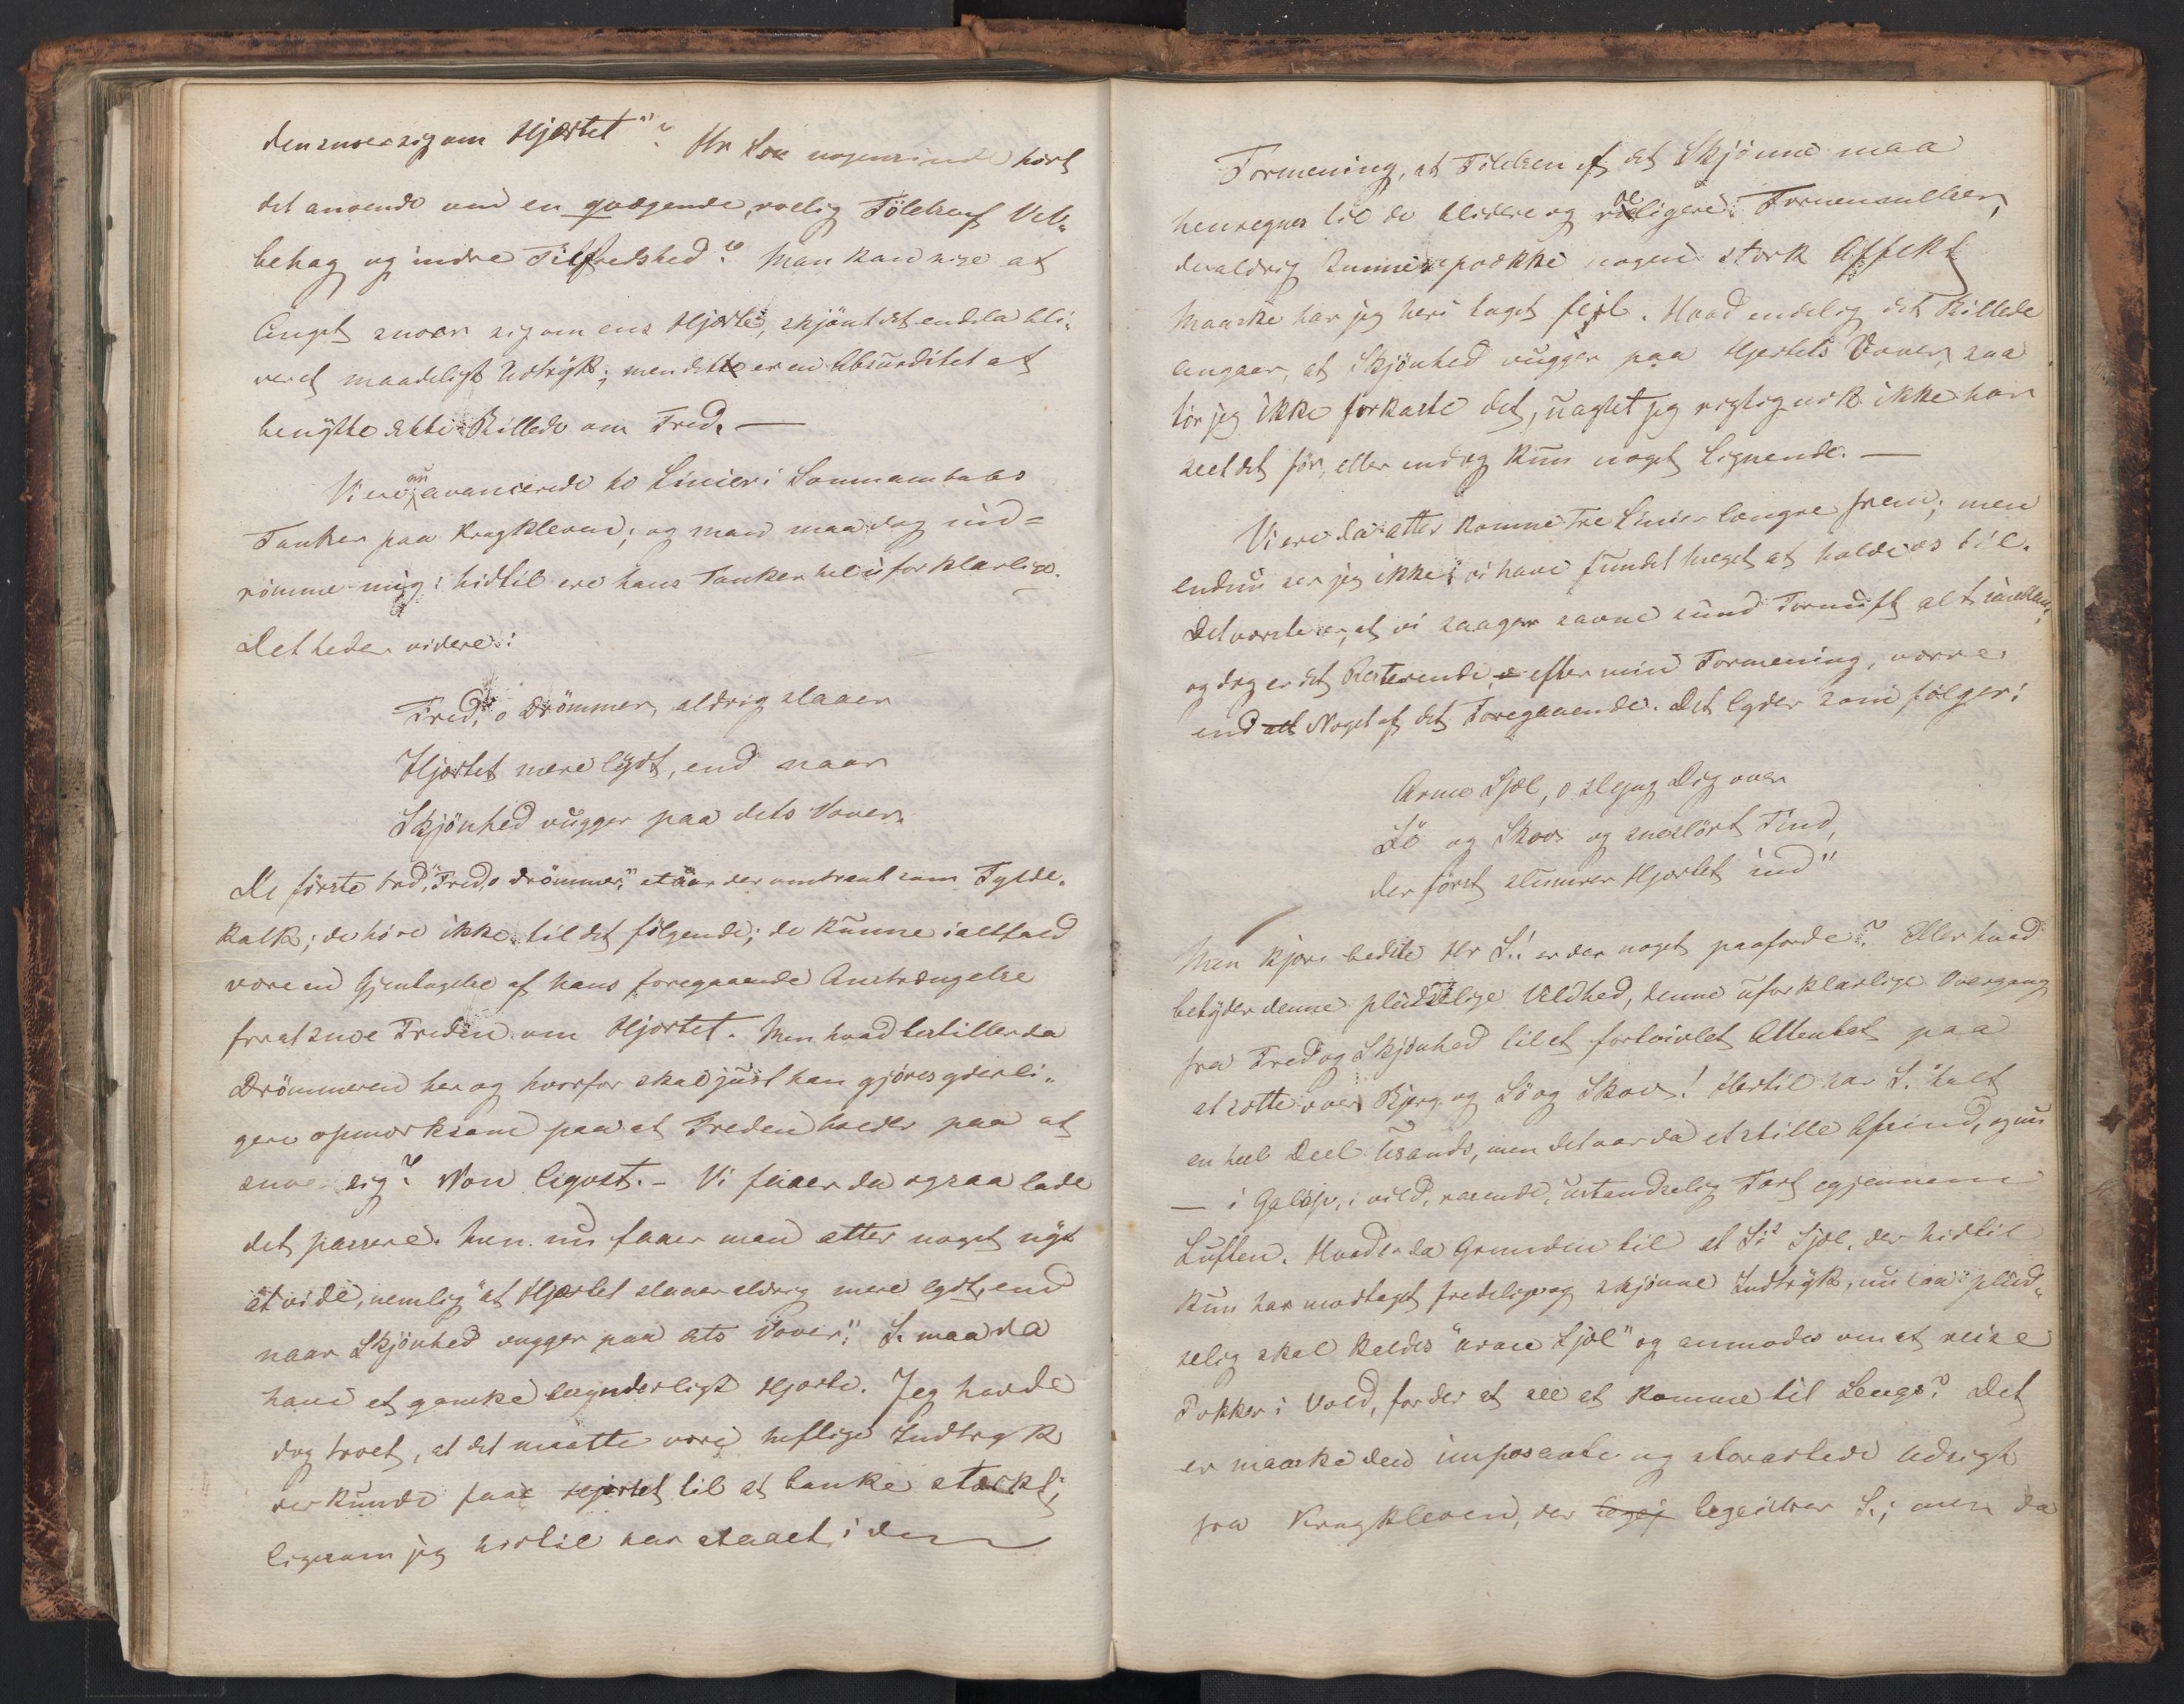 den snoer sig om Hjertet"? Har Son nogensinde hørt
det anvendt om en qvægende, rolig Følelse af Vel„
behag og indre Tilfredshed? Man kan sige at
Angst snoer sig om ens Hjerte, skjønt det endda bli„
ver et maadeligt Udtryk; men dette er en Absurditet at
benytte dette Billede om Fred. —
Vi ere nu avancerede to Linier i Sonnambules
Tanker paa Krogkleven; og man maa dog ind=
rømme mig: hidtil ere hans Tanker hel uforklarlige.
Det heder videre:
Fred, o Drömmer, aldrig slaaer
Hjertet mere lydt, end naar
Skjönhed vugger paa dets Vover.
De første Ord, "Fred, o Drömmer," staaer der omtrent som Fylde„
kalk; de høre ikke til det følgende; de kunne ialtfald
være en Gjentagelse af hans foregaaende Anstrængelse
for at snoe Freden om Hjertet. Men hvad bestiller da
Drömmeren her og hvorfor skal just han gjøres yderli„
gere opmærksom paa at Freden holder paa at
snoe sig? Non liqvet. – Vi faaer da ogsaa lade
det passere. Men nu faaer man atter noget nyt
at vide, nemlig "at Hjertet slaaer aldrig mere lydt, end
naar Skjönhed vugger paa dets Vover". S. maa da
have et ganske besynderligt Hjerte. Jeg havde
dog troet, at det maatte være heftige Indtryk
der kunde faae Hjertet til at banke stærkt,
ligesom jeg hidtil har staaet i den
Formening, at Følelsen af det Skjönne maa
henregnes til de blidere og roligere Fornemmelser,
der aldrig kunne opvække nogen stærk Affekt
Maaske har jeg heri taget fejl. Hvad endelig det Billede
angaaer, at Skjönhed vugger paa Hjertets Vover, saa
tør jeg ikke forkaste det, uagtet jeg rigtignok ikke har
seet det før, eller endog kun noget Lignende. —
Vi ere da atter komne tre Linier længre frem; men
endnu ser jeg ikke, vi have fundet meget at holde os til.
Det værste er, at vi saagar savne sund Fornuft alt imellem,
og dog er det Resterende, efter min Formening, værre
end alt Noget af det Foregaaende. Det lyder som følger:
Arme Sjæl, o slyng Dig over
Sö og Skov og sneslört Tind,
der först slumrer Hjertet ind"
Men kjære bedste Hr S.! er der noget paafærde? Eller hvad
betyder denne pludselige Vildhed, denne uforklarlige Overgang
fra Fred og Skjönhed til et fortvivlet Attentat paa
at sætte over Bjerg og Sö og Skov! Hertil har S. talt
en heel Deel Usands, men det var da et stille Afsind, og nu
— i Galop, i vild, rasende, ustandselig Fart igjennem
Luften. Hvad er da Grunden til at S.s Sjæl, der hidtil
kun har modtaget fredelige og skjønne Indtryk, nu saa plud„
selig skal kaldes "arme Sjæl" og anmodes om at reise
Pokker i Vold, for der at see at komme til Sengs? Det
er maaske den imposante og storartede Udsigt
fra Krogkleven, der begeistrer S.; men da